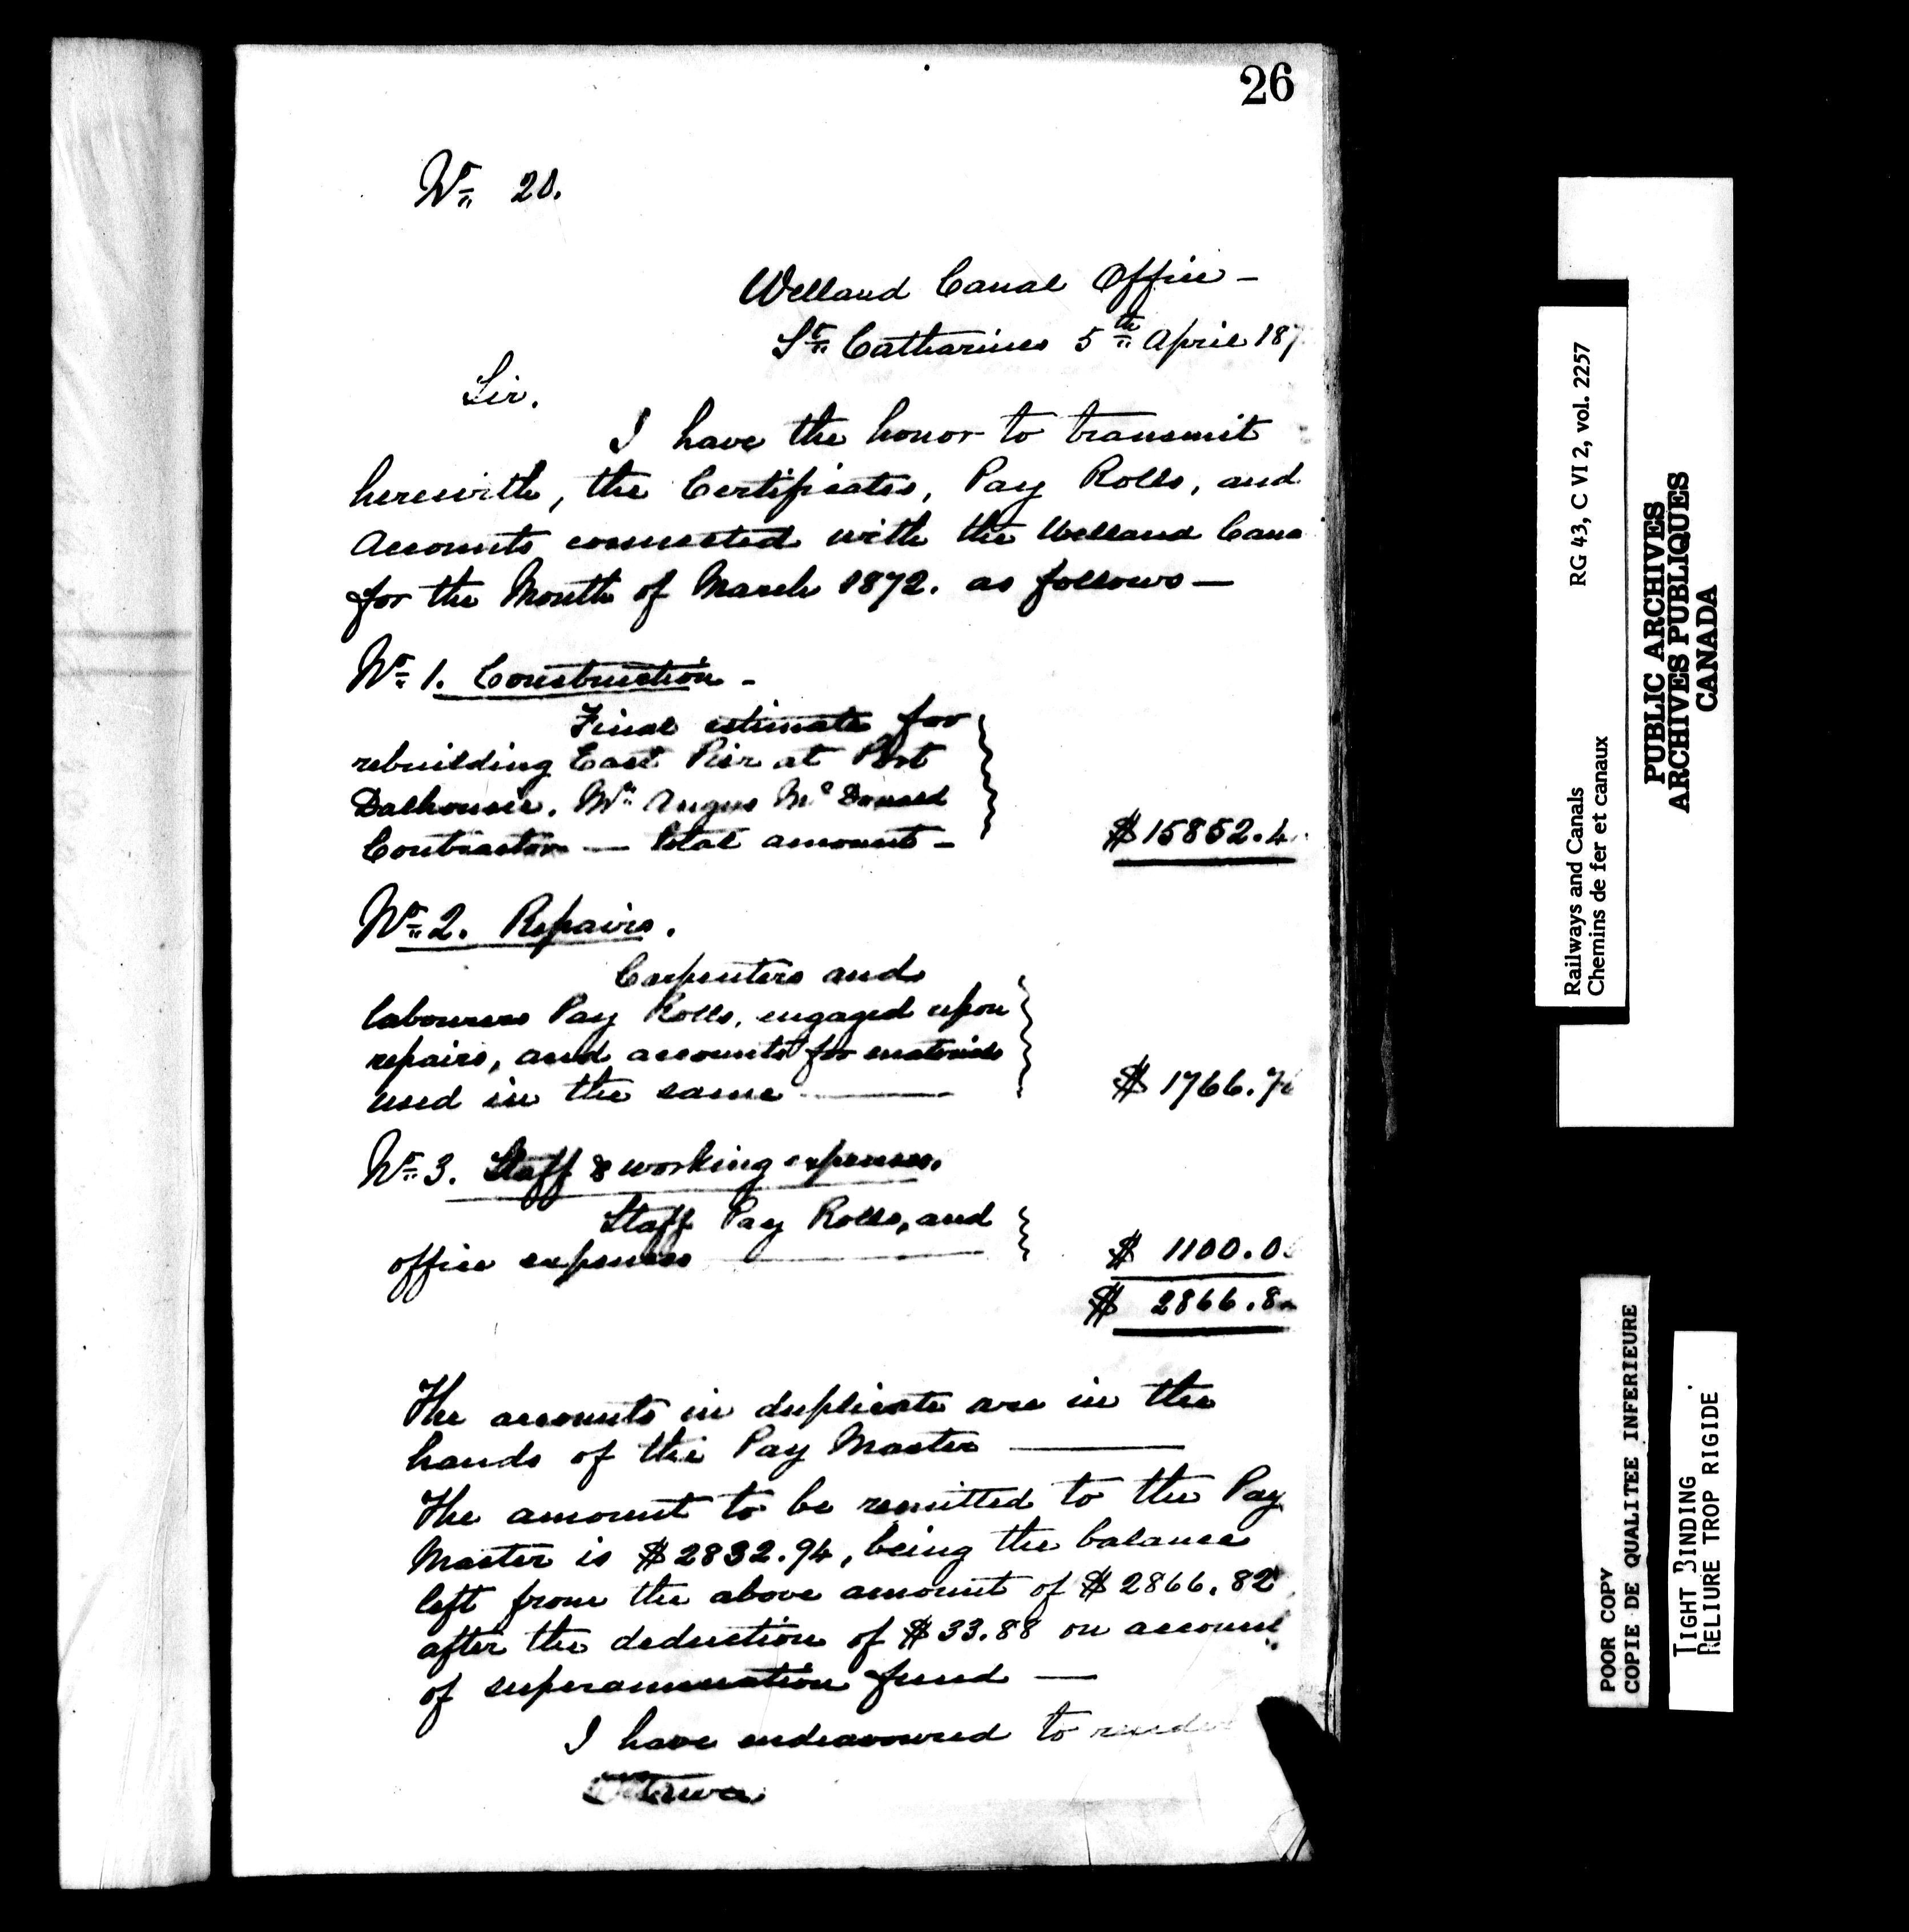 26
No 20.
Welland Canal Office —
St. Catharines 5th April 187
Sir.
I have the honor to transmit
herewith, the Certificates, Pay Rolls, and
Accounts connected with the Welland Cana
for the Month of March 1872. as follows —
No 1. Construction -
Final estimate for
rebuilding East Pier at Port
Dalhousie. Mr Angus McDonald
Contractor — Total amount -
$ 15852.4
No 2. Repairs.
Carpenters and
labourers Pay Rolls, engaged upon
repairs, and accounts for materials
used in the same —
$ 1766.7
No 3. Staff & working expenses.
Staff Pay Rolls, and
office expenses —
$ 1100.0
$ 2866.8
The accounts in duplicate are in the
hands of the Pay Master —
The amount to be remitted to the Pay
Master is $2832.94, being the balance
left from the above amount of $2866.82
after the deduction of $33.88 on account
of superannuation fund —
I have endeavoured to render
Ottawa
Railways and Canals RG 43, C VI 2, vol. 2257
Chemins de fer et canaux
PUBLIC ARCHIVES
ARCHIVES PUBLIQUES
CANADA
POOR COPY
COPIE DE QUALITEE INFERIEURE
TIGHT BINDING
RELIURE TROP RIGIDE